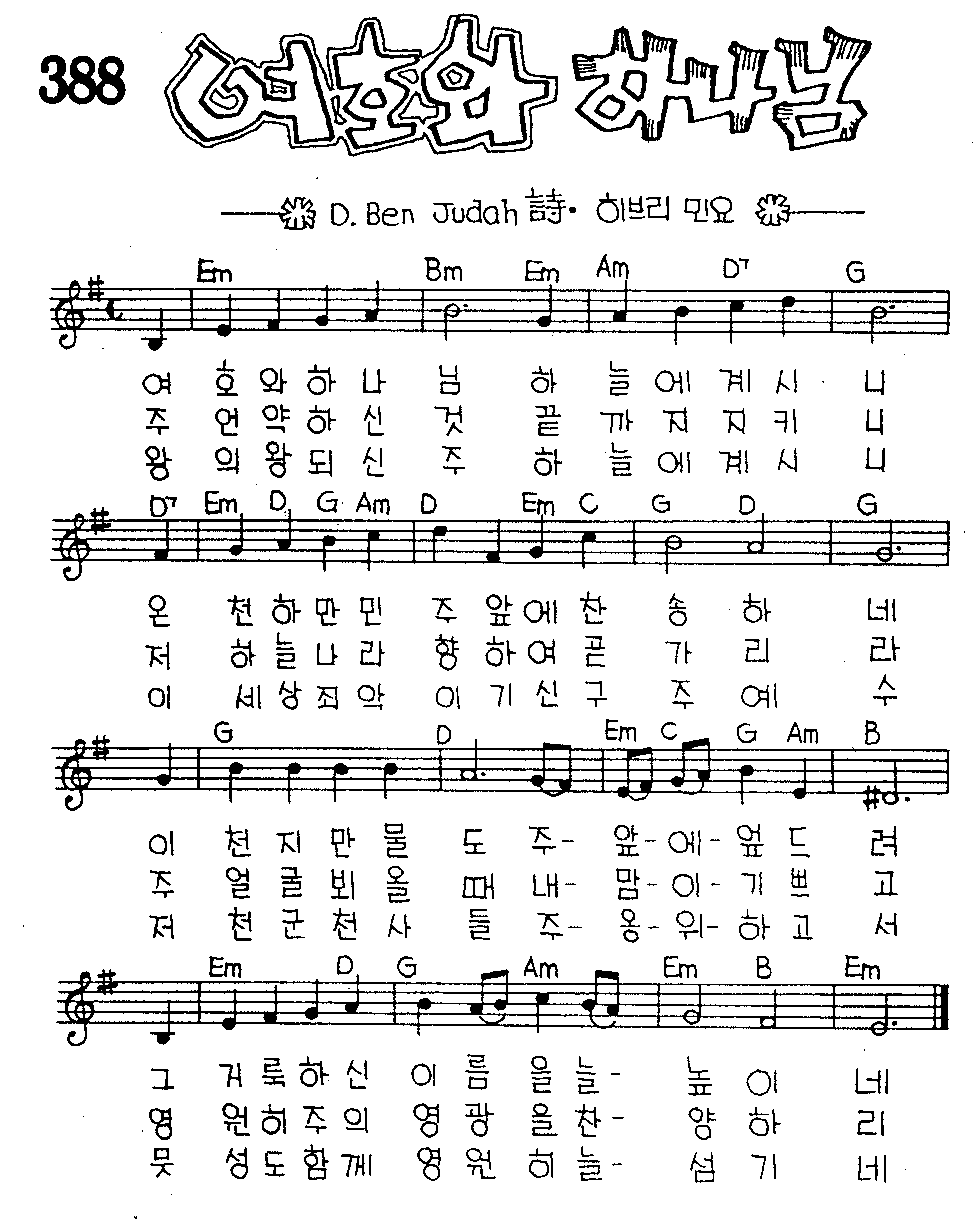 388 여호와 하나님
D. Ben Judah 詩· 히브리 민요
Em Bm Em Am D7 G
여 호 와 하 나 님 하 늘 에 계 시 니
주 언 약 하 신 것 끝 까 지 지 키 니
왕 의 왕 되 신 주 하 늘 에 계 시 니
D7 Em D G Am D Em C G D G
온 천 하 만 민 주 앞 에 찬 송 하 네
저 하 늘 나 라 향 하 여 곧 가 리 라
이 세 상 죄 악 이 기 신 구 주 예 수
G D Em C G Am B
이 천 지 만 물 도 주- 앞- 에- 엎 드 려
주 얼 굴 뵈 올 때 내- 맘- 이- 기 쁘 고
저 천 군 천 사 들 주- 옹- 위- 하 고 서
Em D G Am Em B Em
그 거 룩 하 신 이 름 을 늘- 높 이 네
영 원 히 주 의 영 광 을 찬- 양 하 리
뭇 성 도 함 께 영 원 히 늘- 섬 기 네